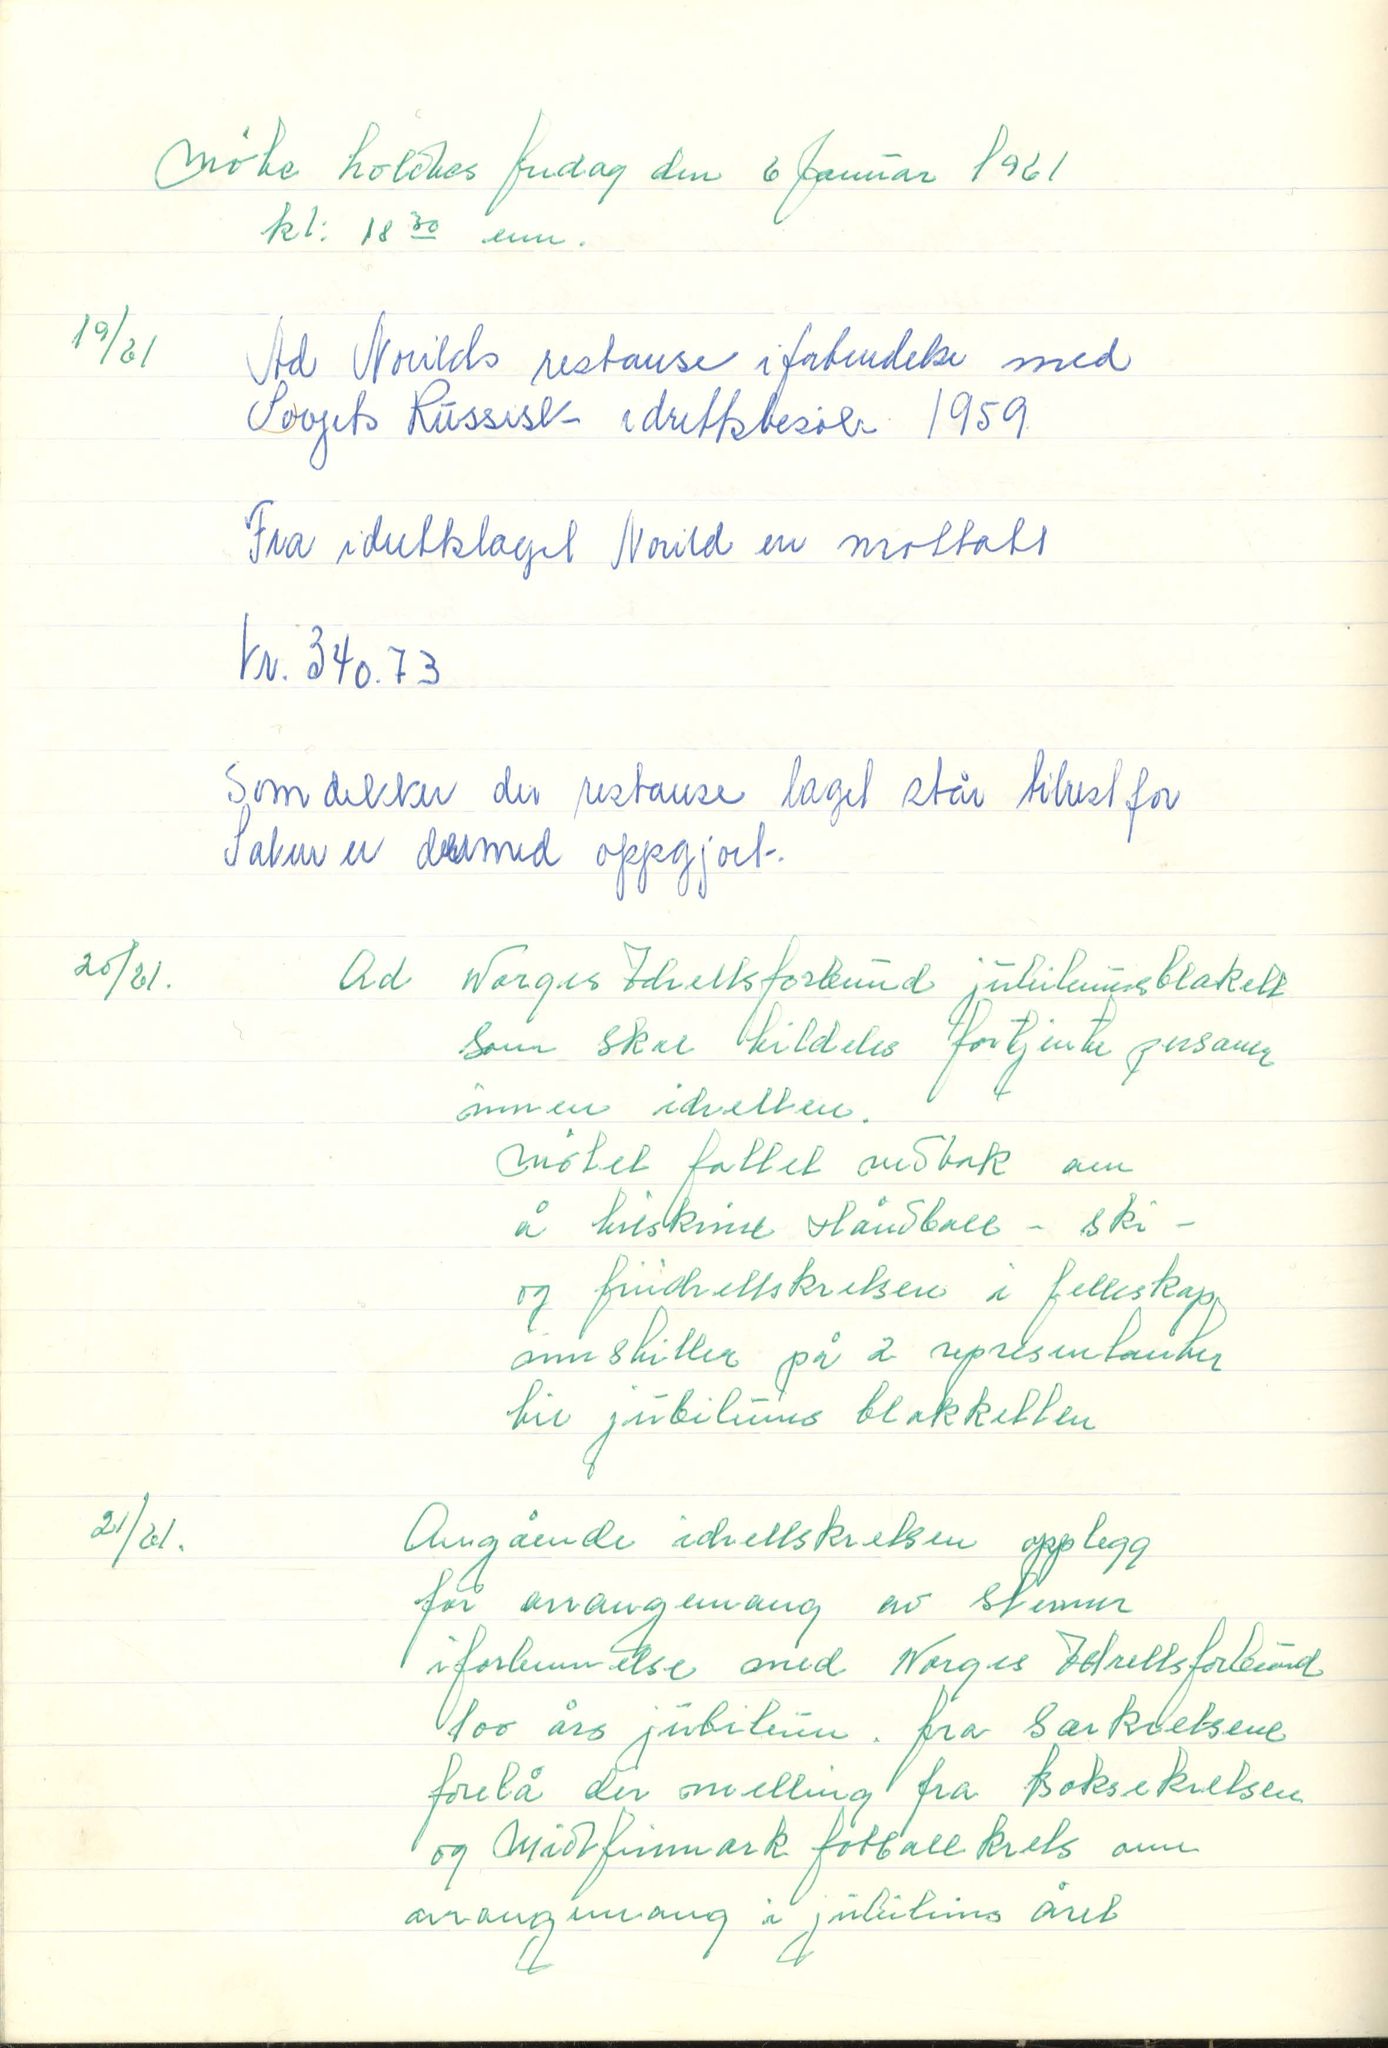 Møte holdtes fredag den 6 Januar 1961
kl: 18 30 em.
19/61
Ad Norilds restanse i forbindelse med
Sovjets Russisk idrettsbesøk 1959
Fra idrettslaget Norild er mottatt
kr. 340.73
Som dekker den restanse laget står tilrest for
Saken er dermed oppgjort.
20/61.
Ad Norges Idrettsforbund jubileumsblakett
som skal tildeles fortjente personer
innen idretten.
Møtet fattet vedtak om
å tilskrive Håndball - ski -
og friidrettskretsen i felleskap
innstiller på 2 representanter
til jubileums blakketten
21/61.
Angående idrettskretsen opplegg
for arrangemang av stevner
i forbinnelse med Norges Idrettsforbund
100 års jubileum. fra Særkretsene
forelå der melling fra Boksekretsen
og Midtfinnmark fotballkrets om
arrangemang i jubileums året